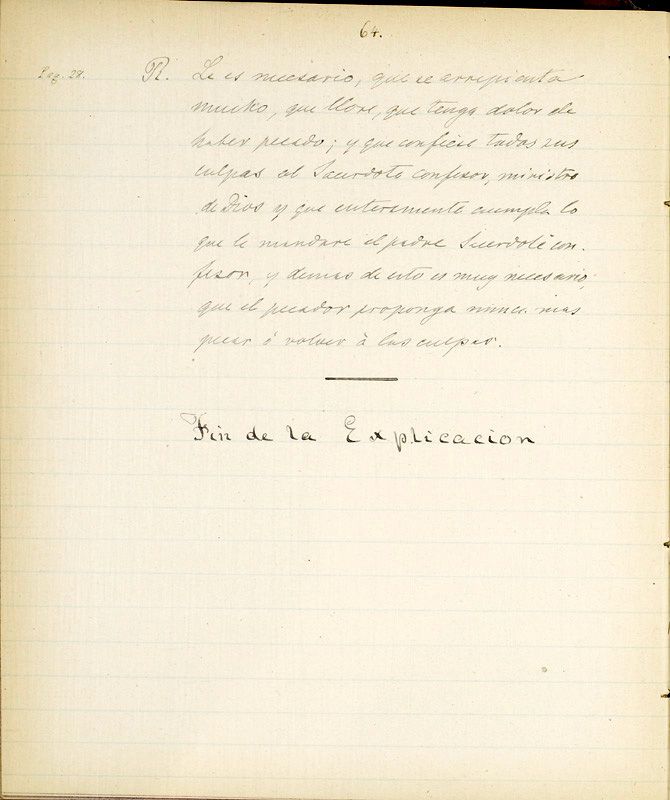 64.
Pag. 28.
R. Le es necesario, que se arrepienta
mucho, que llore, que tenga dolor de
haber pecado; y que confiese todas sus
culpas al Sacerdote confesor, ministro
de Dios y que enteramente cumpla lo
que le mandare el padre Sacerdote con-
fesor, y demas de esto es muy necesario,
que el pecador proponga nunca mas
pecar ó volver á las culpas.
Fin de la Explicacion